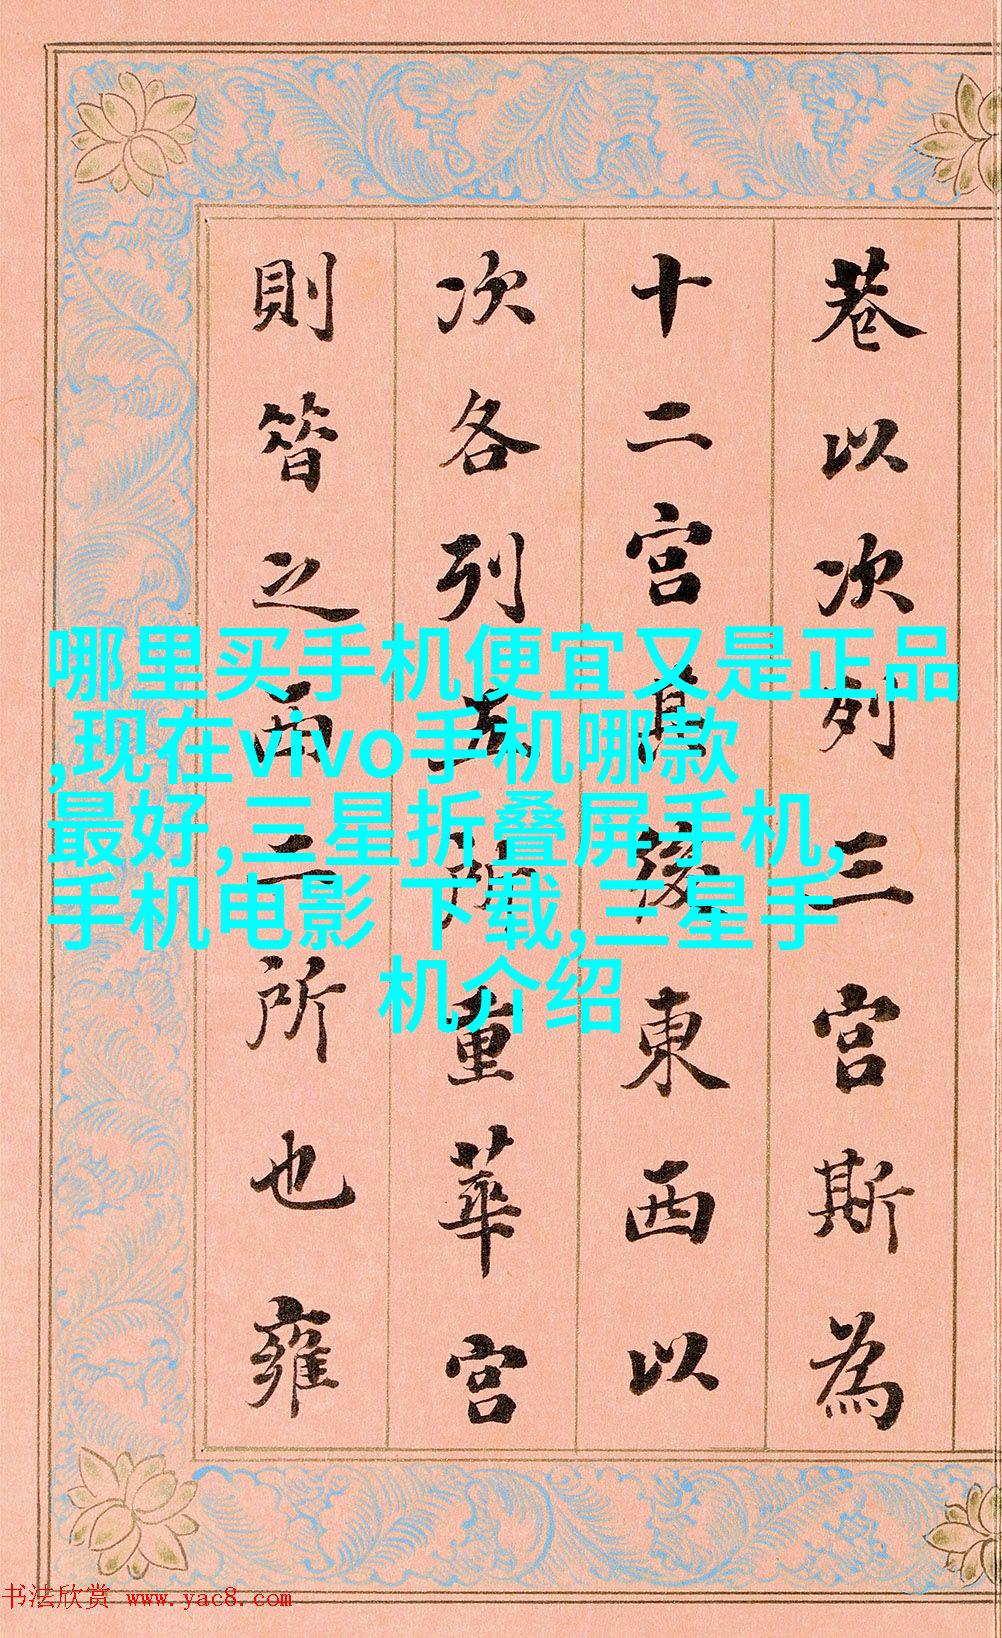 巷以次列三宫斯為
十二宫 後東西以
次各列 重華宫
則昝之兩二所也雍
哪里买手机便宜又是正品
,现在vivo手机哪款
最好,三星折叠屏手机,
手机电影 下载,三星手
机介绍
书法欣赏 www.yac8.com